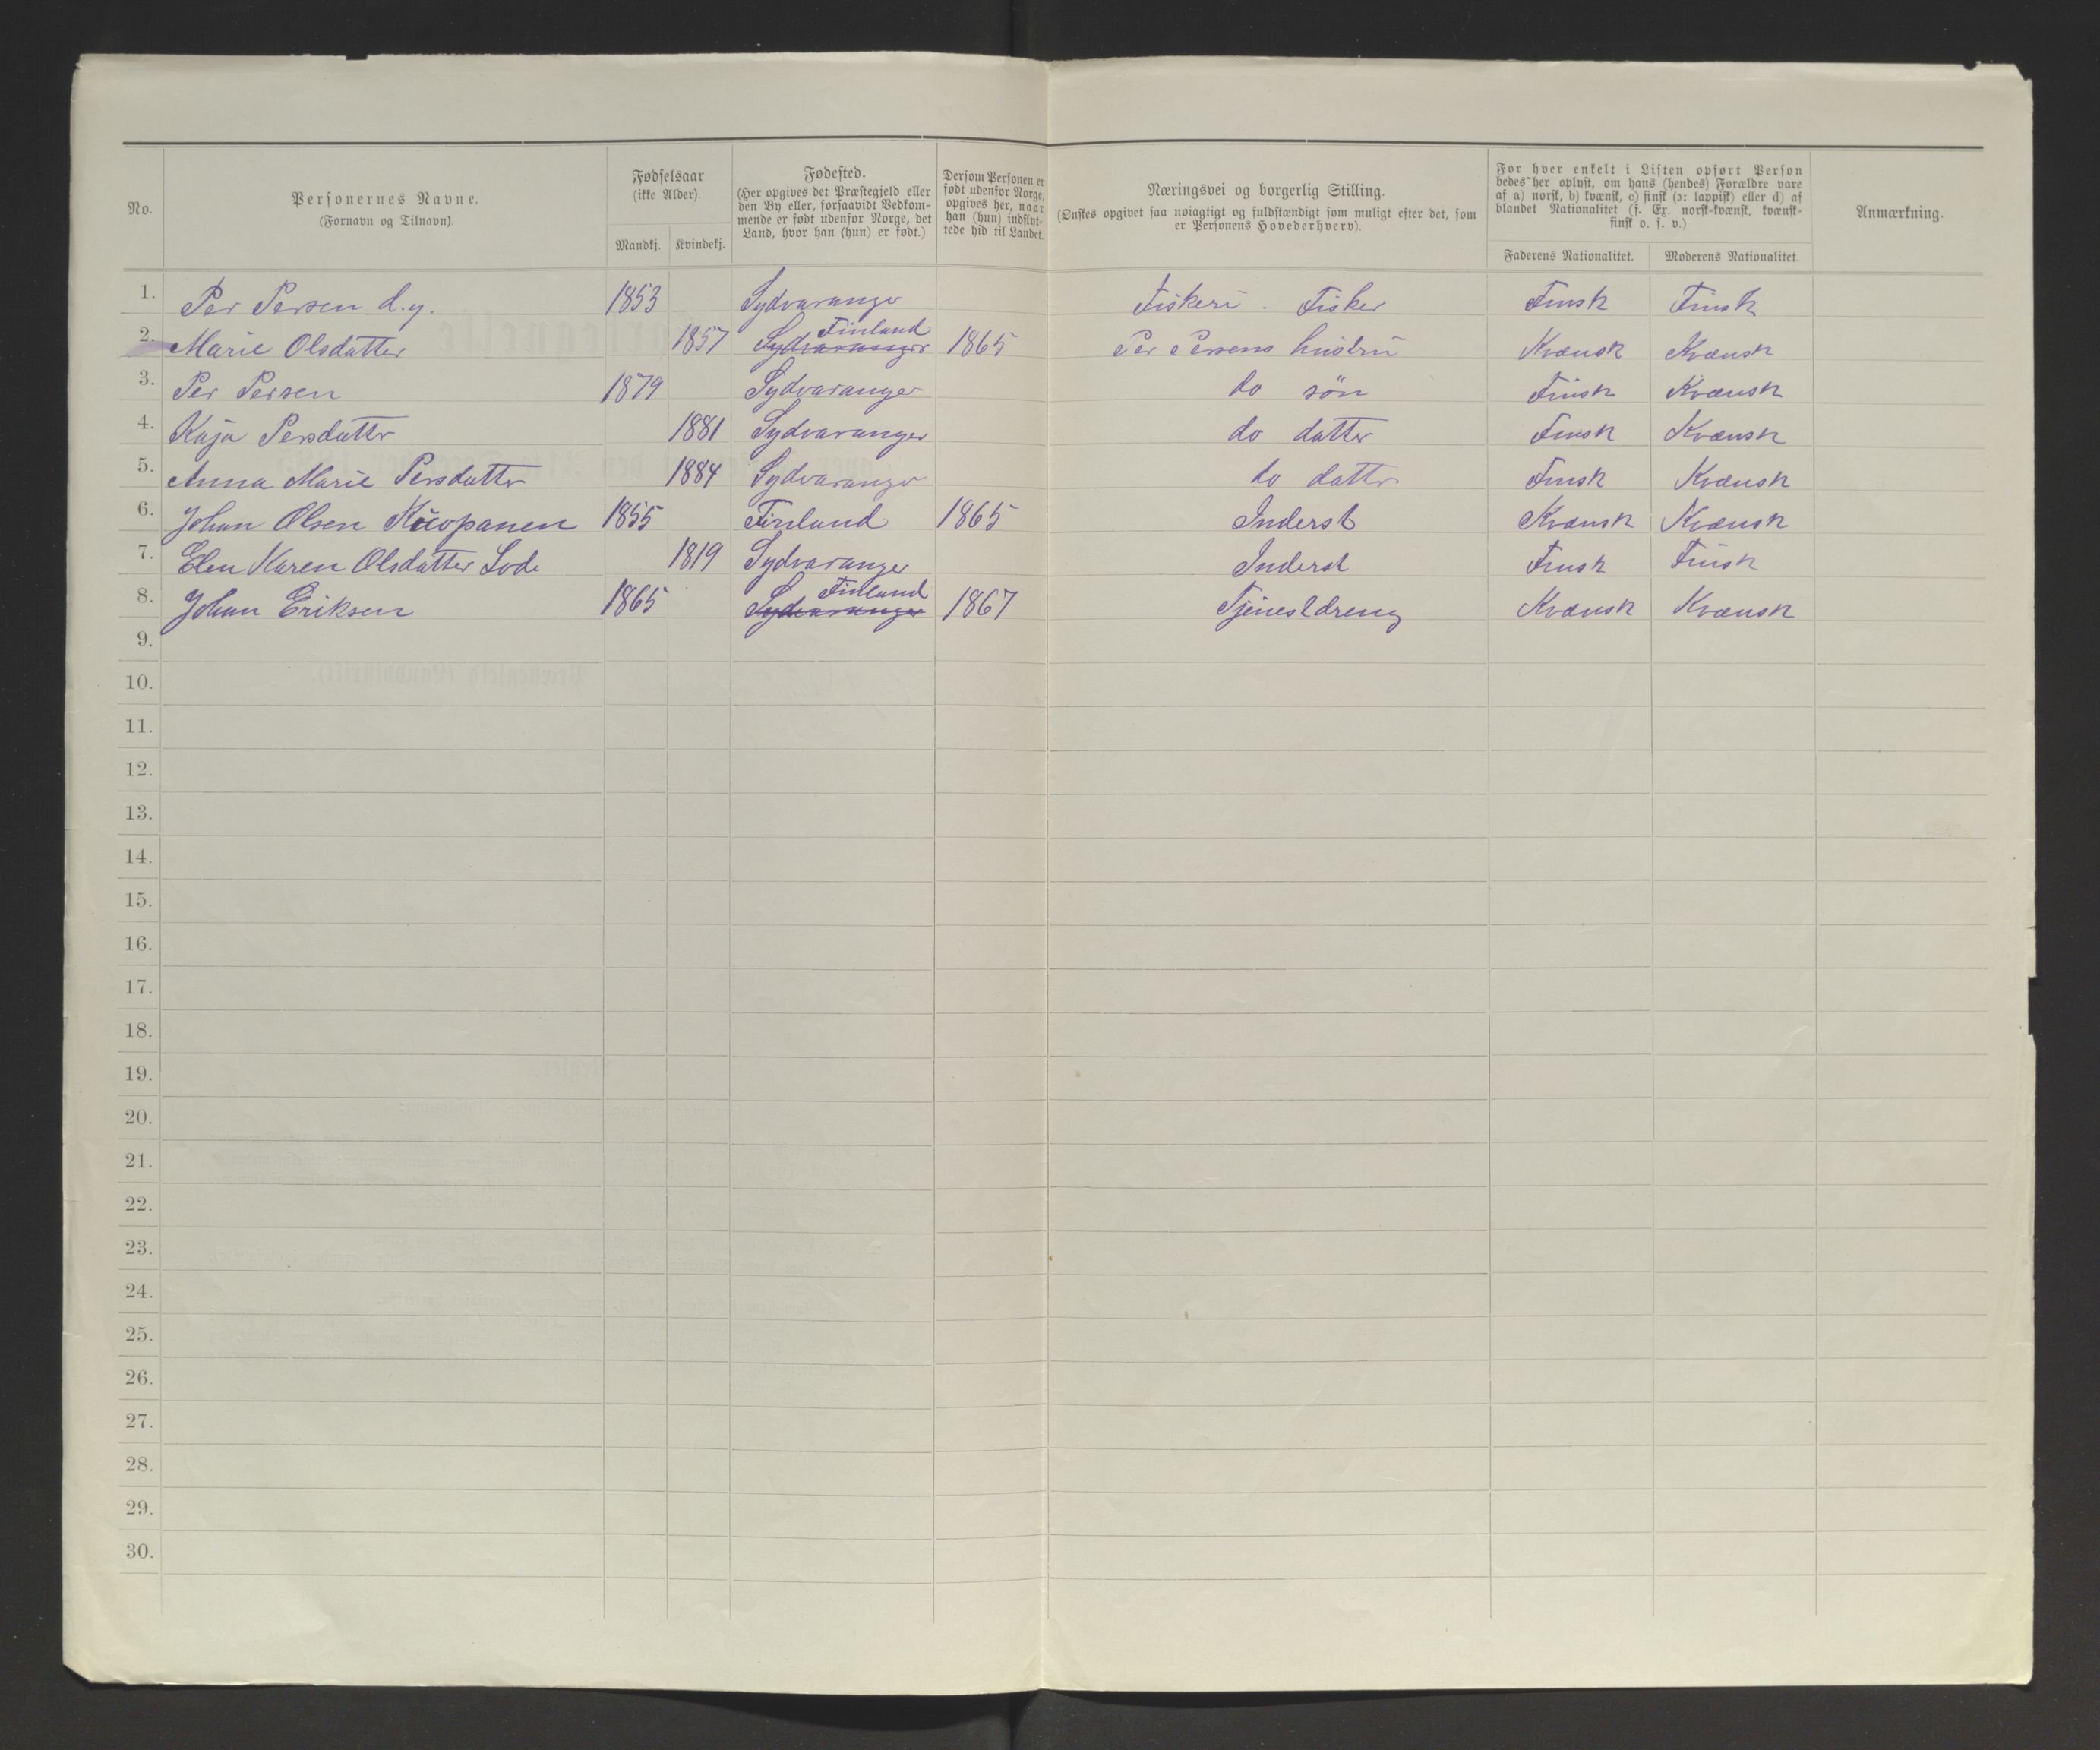 No.
Personernes Navne.
(Fornavn og Tilnavn).
Fødselsaar
(ikke Alder).
Mandkj. Kvindekj.
Fødested.
(Her opgives det Præstegjeld eller
den By eller, forsaavidt Vedkom-
mende er født udenfor Norge, det
Land, hvor han (hun) er født.)
Dersom Personen er
født udenfor Norge,
opgives her, naar
han (hun) indflyt-
tede hid til Landet.
Næringsvei og borgerlig Stilling.
(Ønskes opgivet saa nøiagtigt og fuldstændigt som muligt efter det, som
er Personens Hovederhverv).
For hver enkelt i Listen opført Person
bedes her oplyst, om hans (hendes) Forældre vare
af a) norsk, b) kvænsk, c) finsk (ɔ: lappisk) eller d) af
blandet Nationalitet (f. Ex. norsk-kvænsk, kvænsk-
finsk o. s. v.)
Faderens Nationalitet. Moderens Nationalitet.
Anmærkning.
1. Per Persen d.y. 1853 Sydvaranger Fiskeri . Fisker Finsk Finsk
Finland
2. Marie Olsdatter 1857 Sydvaranger 1865 Per Persens hustru Kvænsk Kvænsk
3. Per Persen 1879 Sydvaranger do søn Finsk Kvænsk
4. Kaja Persdatter 1881 Sydvaranger do datter Finsk Kvænsk
5. Anna Marie Persdatter 1884 Sydvaranger do datter Finsk Kvænsk
6. Johan Olsen 1855 Finland 1865 Inderst Kvænsk Kvænsk
7. Elen Karen Olsdatter Lode 1819 Sydvaranger Inderst Finsk Finsk
Finland
8. Johan Eriksen 1865 Sydvaranger 1867 Tjenestdreng Kvænsk Kvænsk
9.
10.
11.
12.
13.
14.
15.
16.
17.
18.
19.
20.
21.
22.
23.
24.
25.
26.
27.
28.
29.
30.